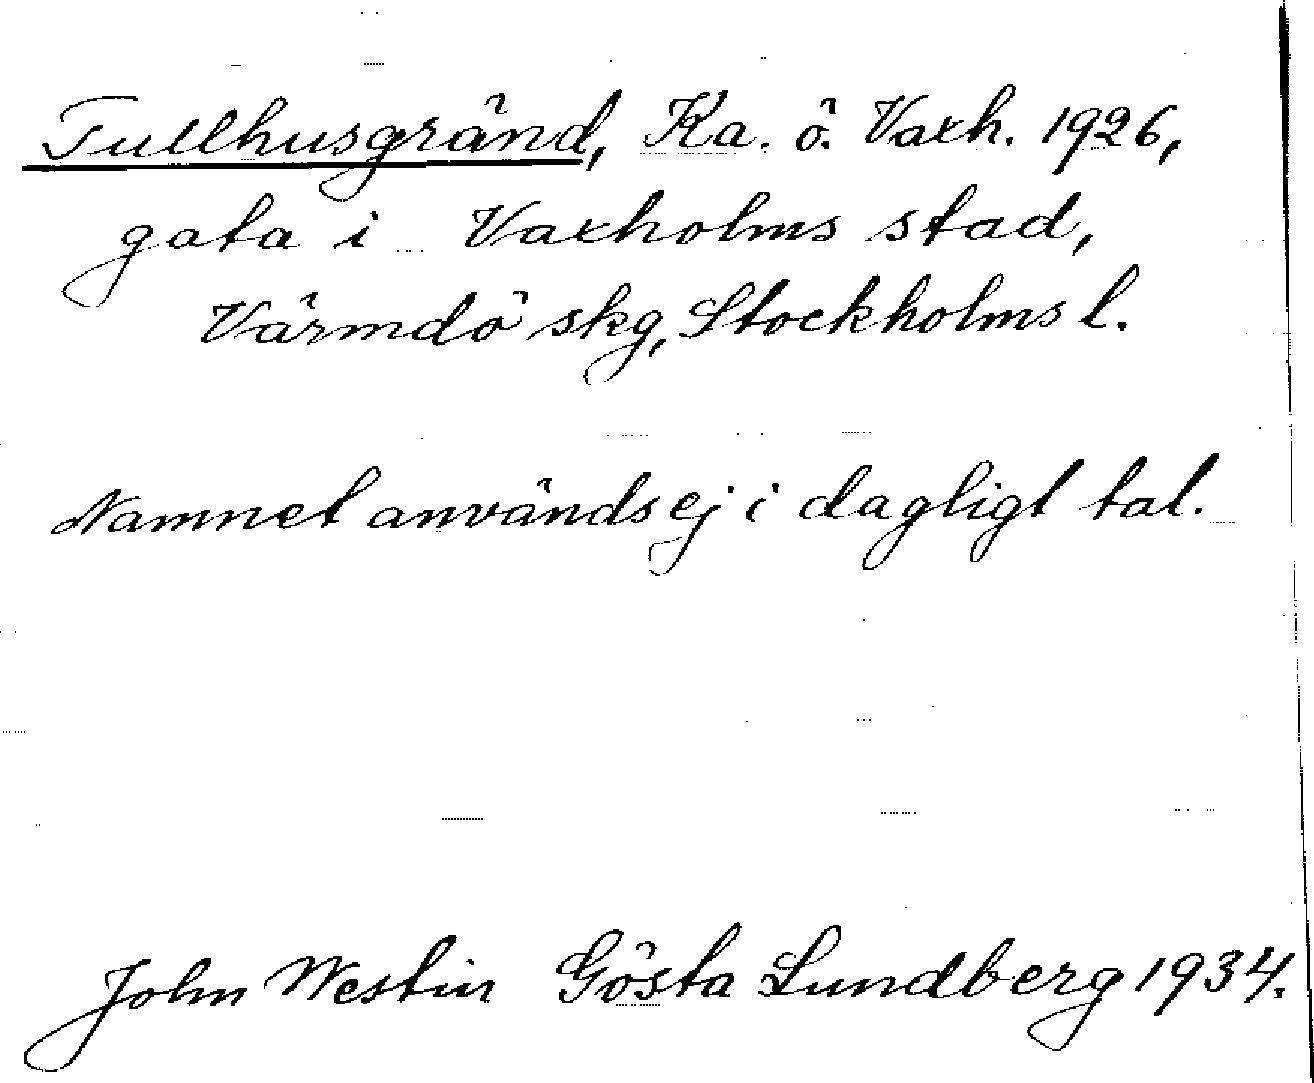 Tullhusgränd, Ka. ö. Vaxh. 1926,
gata i Vaxholms stad,
Värmdö skg, Stockholms l.
Namnet används ej i dagligt tal.
John Westin Gösta Lundberg 1934.